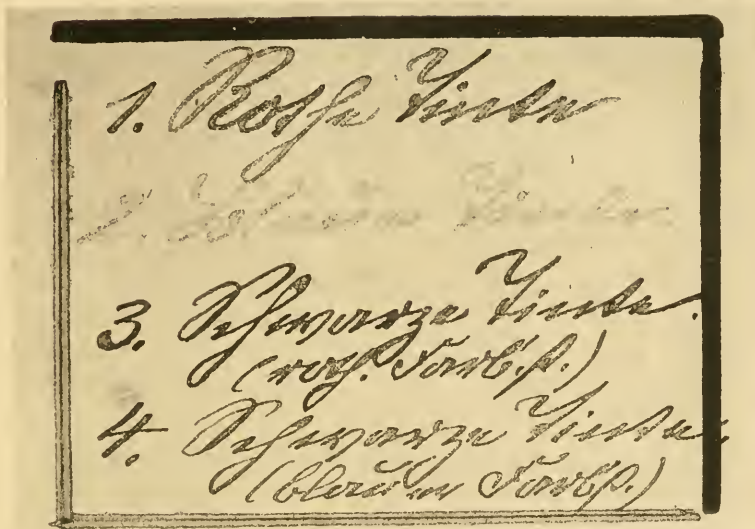 1. Rothe Tinte
2.
3. Schwarze Tinte.
(roth. Farb.st.)
4. Schwarze Tinte.
(blauer Farbst.)